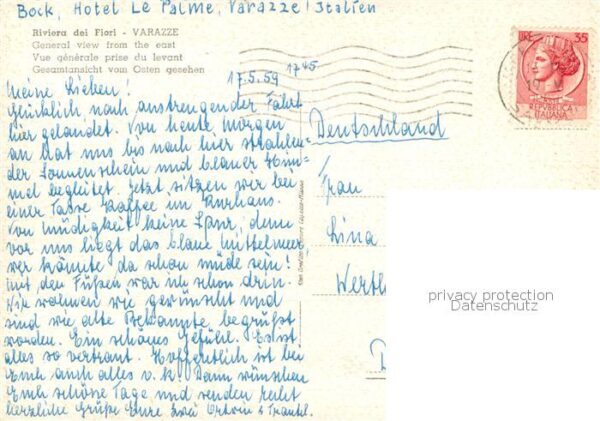 Bock, Hotel Le Palme, Varazze / Italien
Riviera dei Fiori - VARAZZE
General view from the east
Vue générale prise du levant
Gesamtansicht vom Osten gesehen
17.5.59 17⁴⁵
LIRE 35
REPUBBLICA
ITALIANA
Meine Lieben!
Glücklich nach anstrengender Fahrt
hier gelandet. Von heute morgen
an hat uns bis nach hier strahlen=
der Sonnenschein und blauer Him=
mel begleitet. Jetzt sitzen wir bei
einer Tasse Kaffee im Kurhaus.
Von Müdigkeit keine Spur, denn
vor uns liegt das blaue Mittelmeer
wer könnte da schon müde sein!
Mit den Füßen war ich schon drin.
Wir wohnen wie gewünscht und
sind wie alte Bekannte begrüßt
worden. Ein schönes Gefühl. Es ist
alles so vertraut. Hoffentlich ist bei
Euch auch alles o.k. Dann wünschen
Euch schöne Tage und senden recht
herzliche Grüße Eure zwei Ortwin & Trautl.
Deutschland
Frau
Lina
Werth
D
privacy protection
Datenschutz